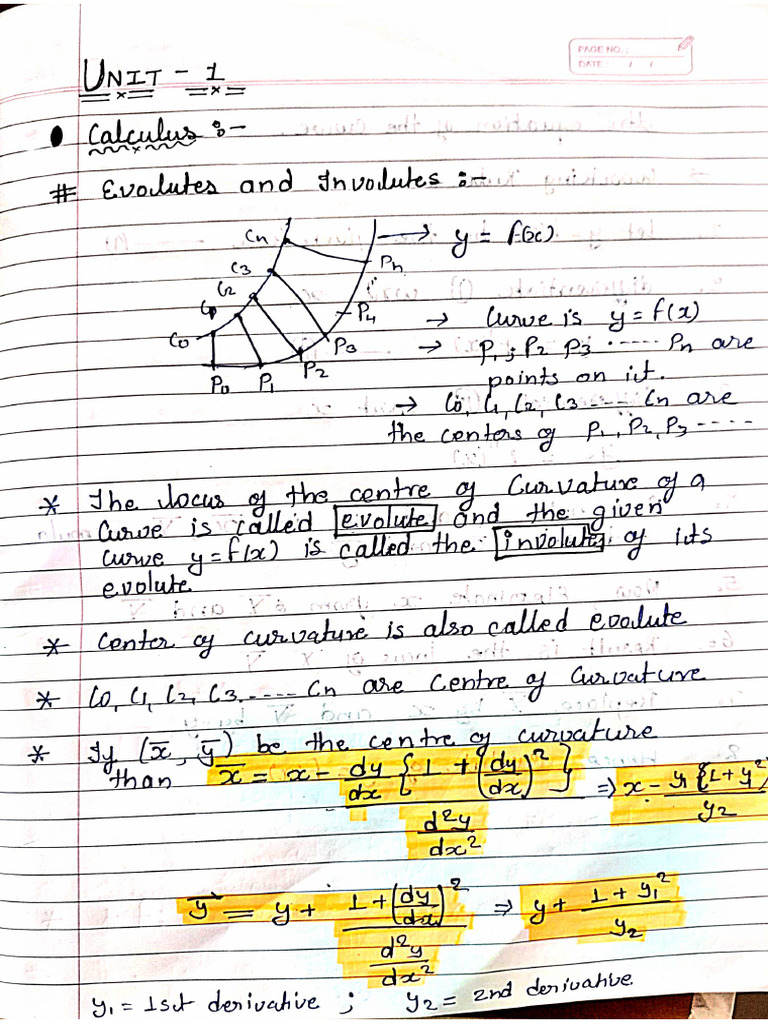 PAGE NO.:
DATE: / /
UNIT - 1
Calculus :-
# Evolutes and Involutes :-
Cn → y = f(x)
C3 Pn
C2
P4
C0 P3
P0 P1 P2
→ Curve is y = f(x)
→ P1, P2 P3 ...... Pn are
points on it.
→ C0, C1, C2, C3 .... Cn are
the centers of P1, P2, P3 .....
* The locus of the centre of Curvature of a
Curve is called evolute and the given
curve y = f(x) is called the involute of its
evolute
* Center of curvature is also called evolute
* C0, C1, C2, C3 ..... Cn are Centre of Curvature
* If (x̄, ȳ) be the centre of curvature
than x̄ = x - dy/dx {1 + (dy/dx)^2} / d²y/dx² ⇒ x - y1 {1 + y1^2} / y2
ȳ = y + 1 + (dy/dx)^2 / d²y/dx² ⇒ y + 1 + y1^2 / y2
y1 = 1st derivative ; y2 = 2nd derivative